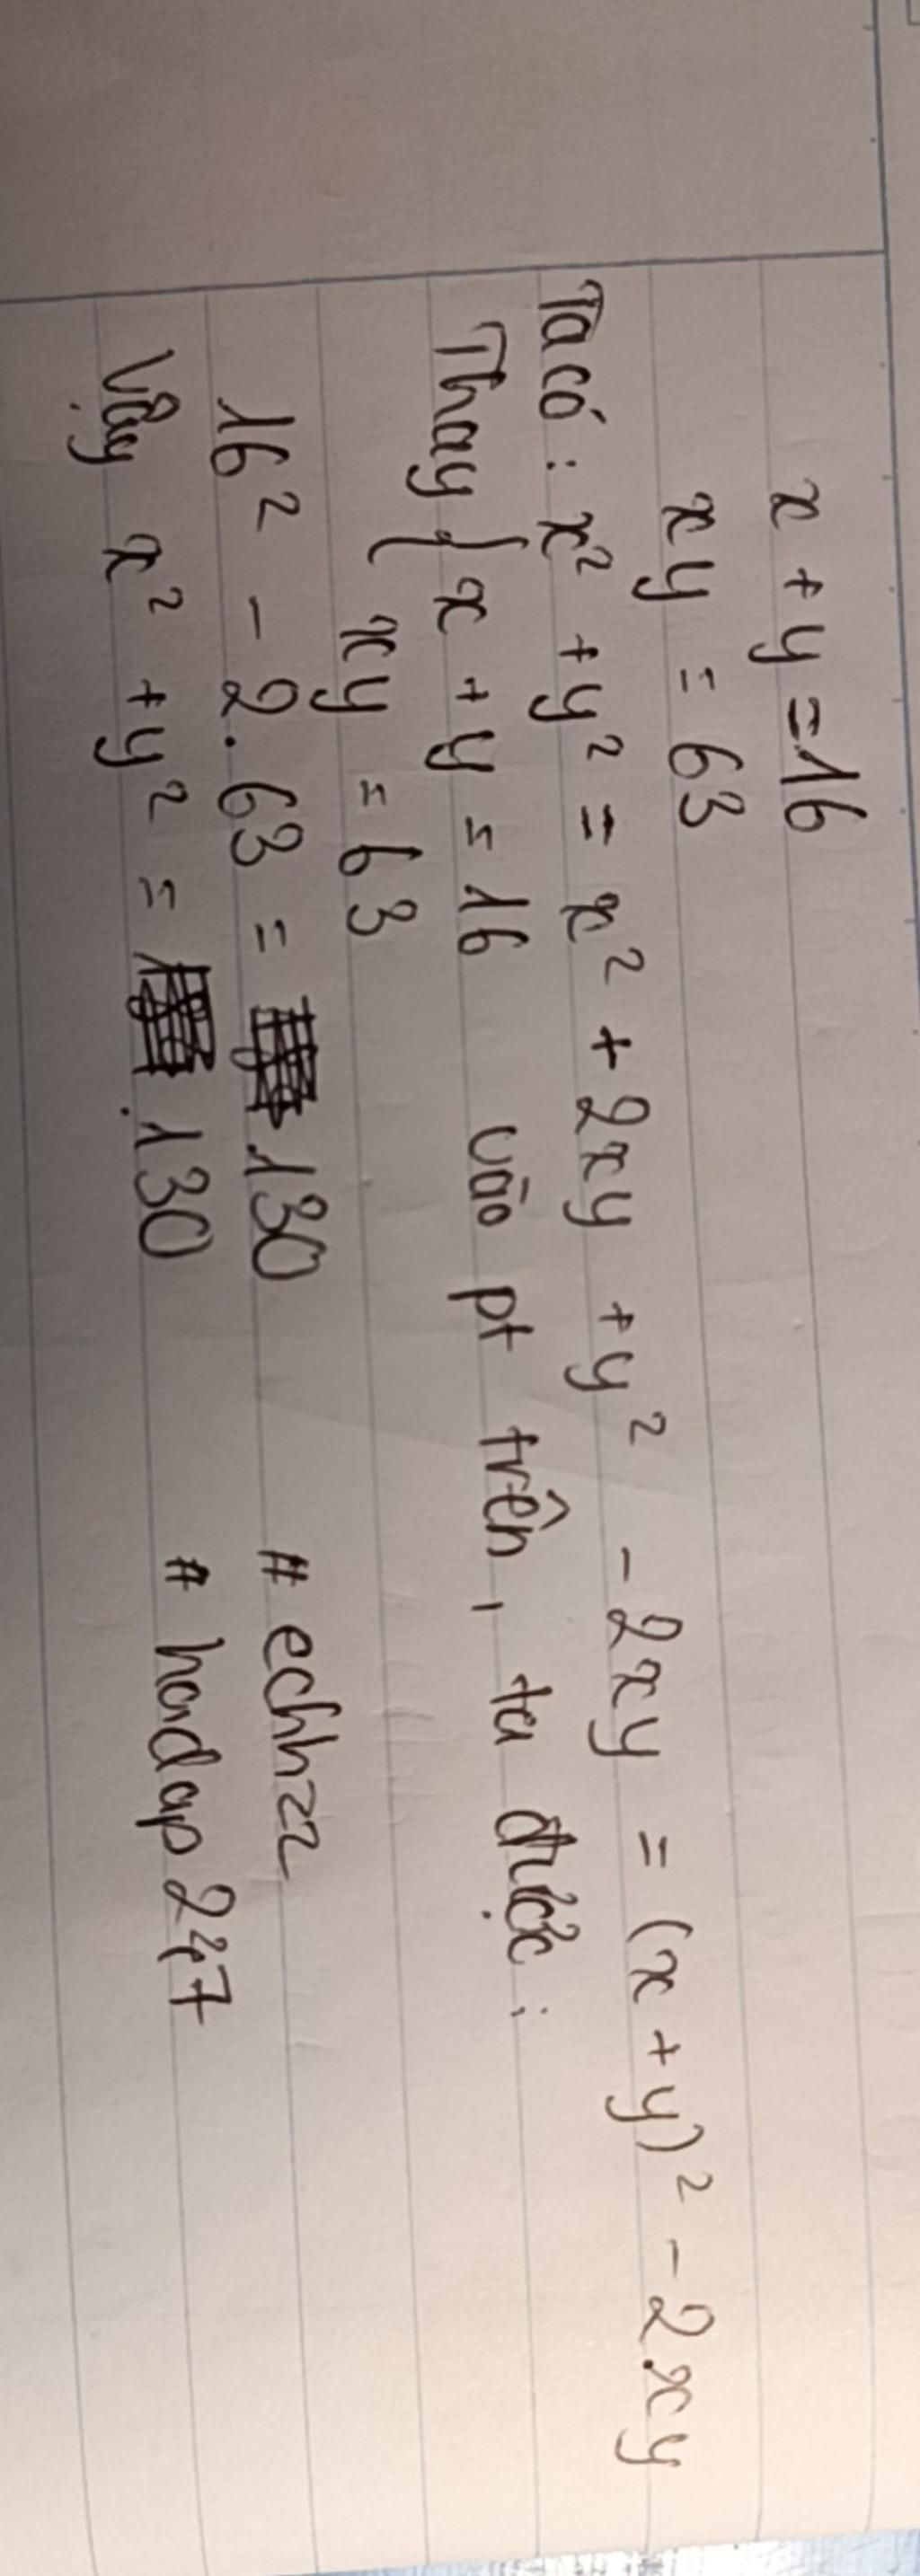 x + y = 16
xy = 63
Ta có : x² + y² = x² + 2xy + y² - 2xy = (x + y)² - 2.xy
Thay { x + y = 16 vào pt trên, ta được :
xy = 63
16² - 2.63 = 130 # echhzz
Vậy x² + y² = 130 # hoidap247